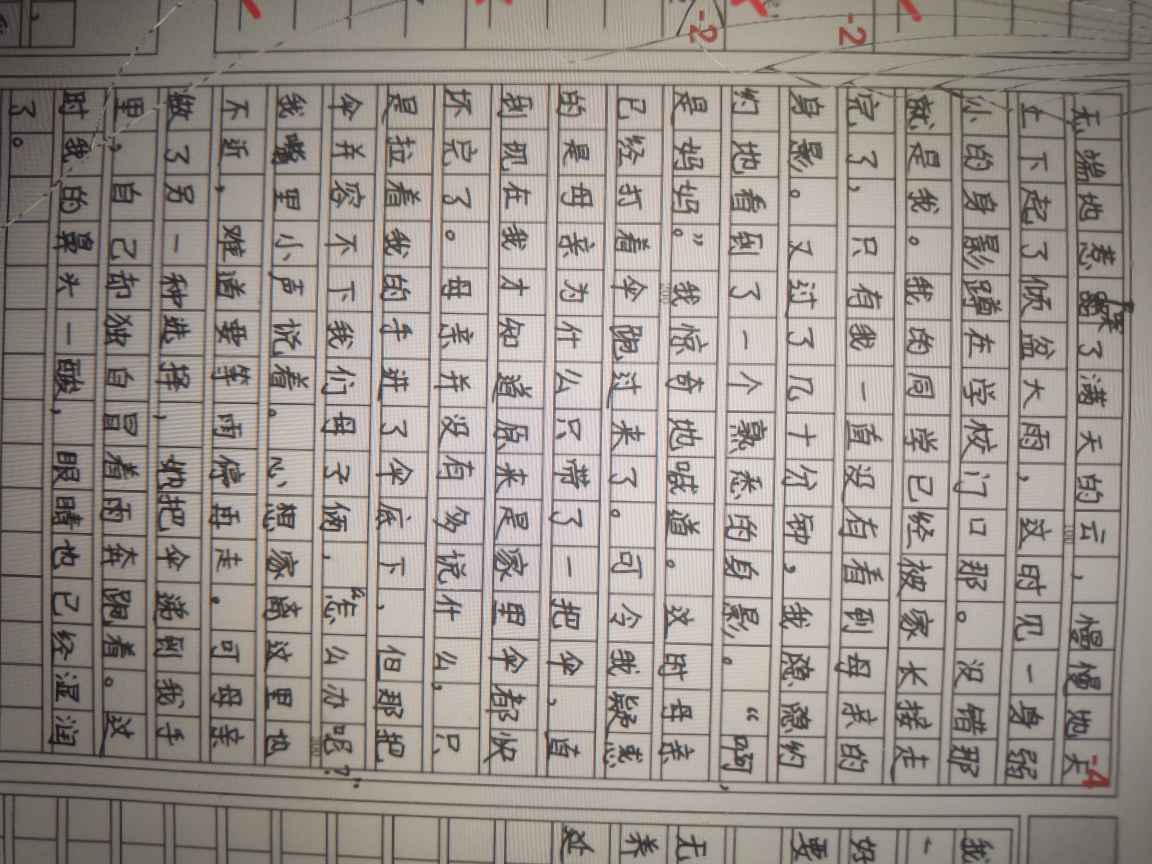 -2
-2
-4
无端地惹哭了满天的云，慢慢地天
100
上下起了倾盆大雨，这时见一身弱
小的身影蹲在学校门口那。没错那
就是我。我的同学已经被家长接走
完了，只有我一直没有看到母亲的
身影。又过了几十分钟，我隐隐约
约地看到了一个熟悉的身影。“啊，
是妈妈。”我惊奇地喊道。这时母亲
200
已经打着伞跑过来了。可令我疑惑
的是母亲为什么只带了一把伞，直
到现在我才知道原来是家里伞都快
坏完了。母亲并没有多说什么，只
是拉着我的手进了伞底下，但那把
伞并容不下我们母子俩，“怎么办呢？”
300
我嘴里小声说着。心想家离这里也
不近，难道要等雨停再走。可母亲
做了另一种选择，她把伞递到我手
里，自己却独自冒着雨奔跑着。这
时我的鼻头一酸，眼睛也已经湿润
了。
我
一
好
要
无
养
延